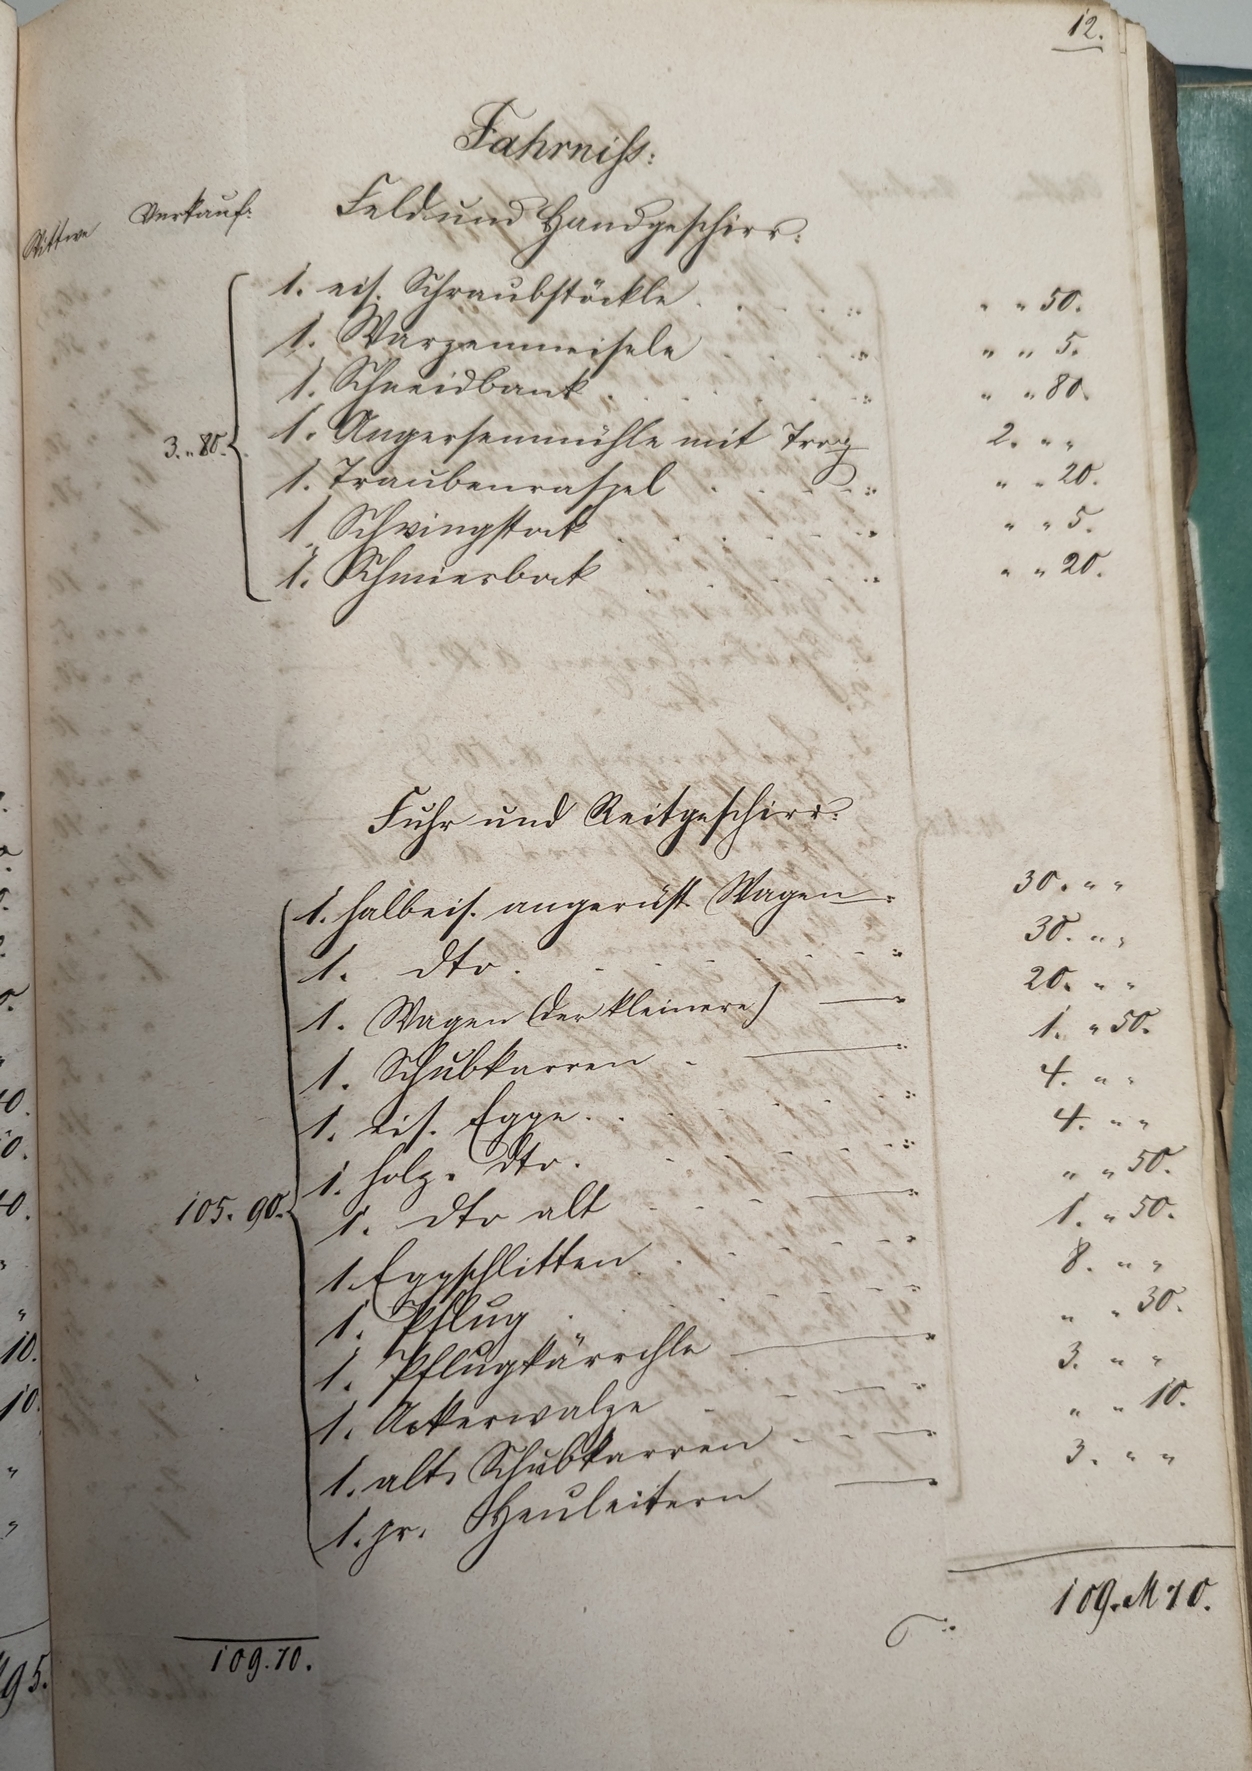 12.
Fahrniss:
Wittwe Verkauf: Feld und Handgeschirr:
1. eis. Schraubstöckle . . . . " " 50.
1. Warzenmeisele . . . . " " 5.
1. Schneidbank . . . . . " " 80.
3. " 80. 1. Angersenmühle mit Trog 2. " "
1. Traubenraspel . . . . " " 20.
1. Schwingstock . . . . " " 5.
1. Schmierbock . . . . " " 20.
Fuhr und Reitgeschirr:
1. halbeis. angerüst. Wagen 30. " "
1. dto. . . . . . 30. " "
1. Wagen (der kleinere) — 20. " "
1. Schubkarren — 1. " 50.
1. eis. Egge . . . . . 4. " "
1. holz. dto. . . . . 4. " "
105. 90. 1. dto alt . . — " " 50.
1. Eggschlitten . . . . 1. " 50.
1. Pflug . . . . . 8. " "
1. Pflugkärrchle — " " 30.
1. Ackerwalze . . . 3. " "
1. alt. Schubkarren . . — " " 10.
1. pr. Heuleitern — 3. " "
109. M 70.
109. 70.